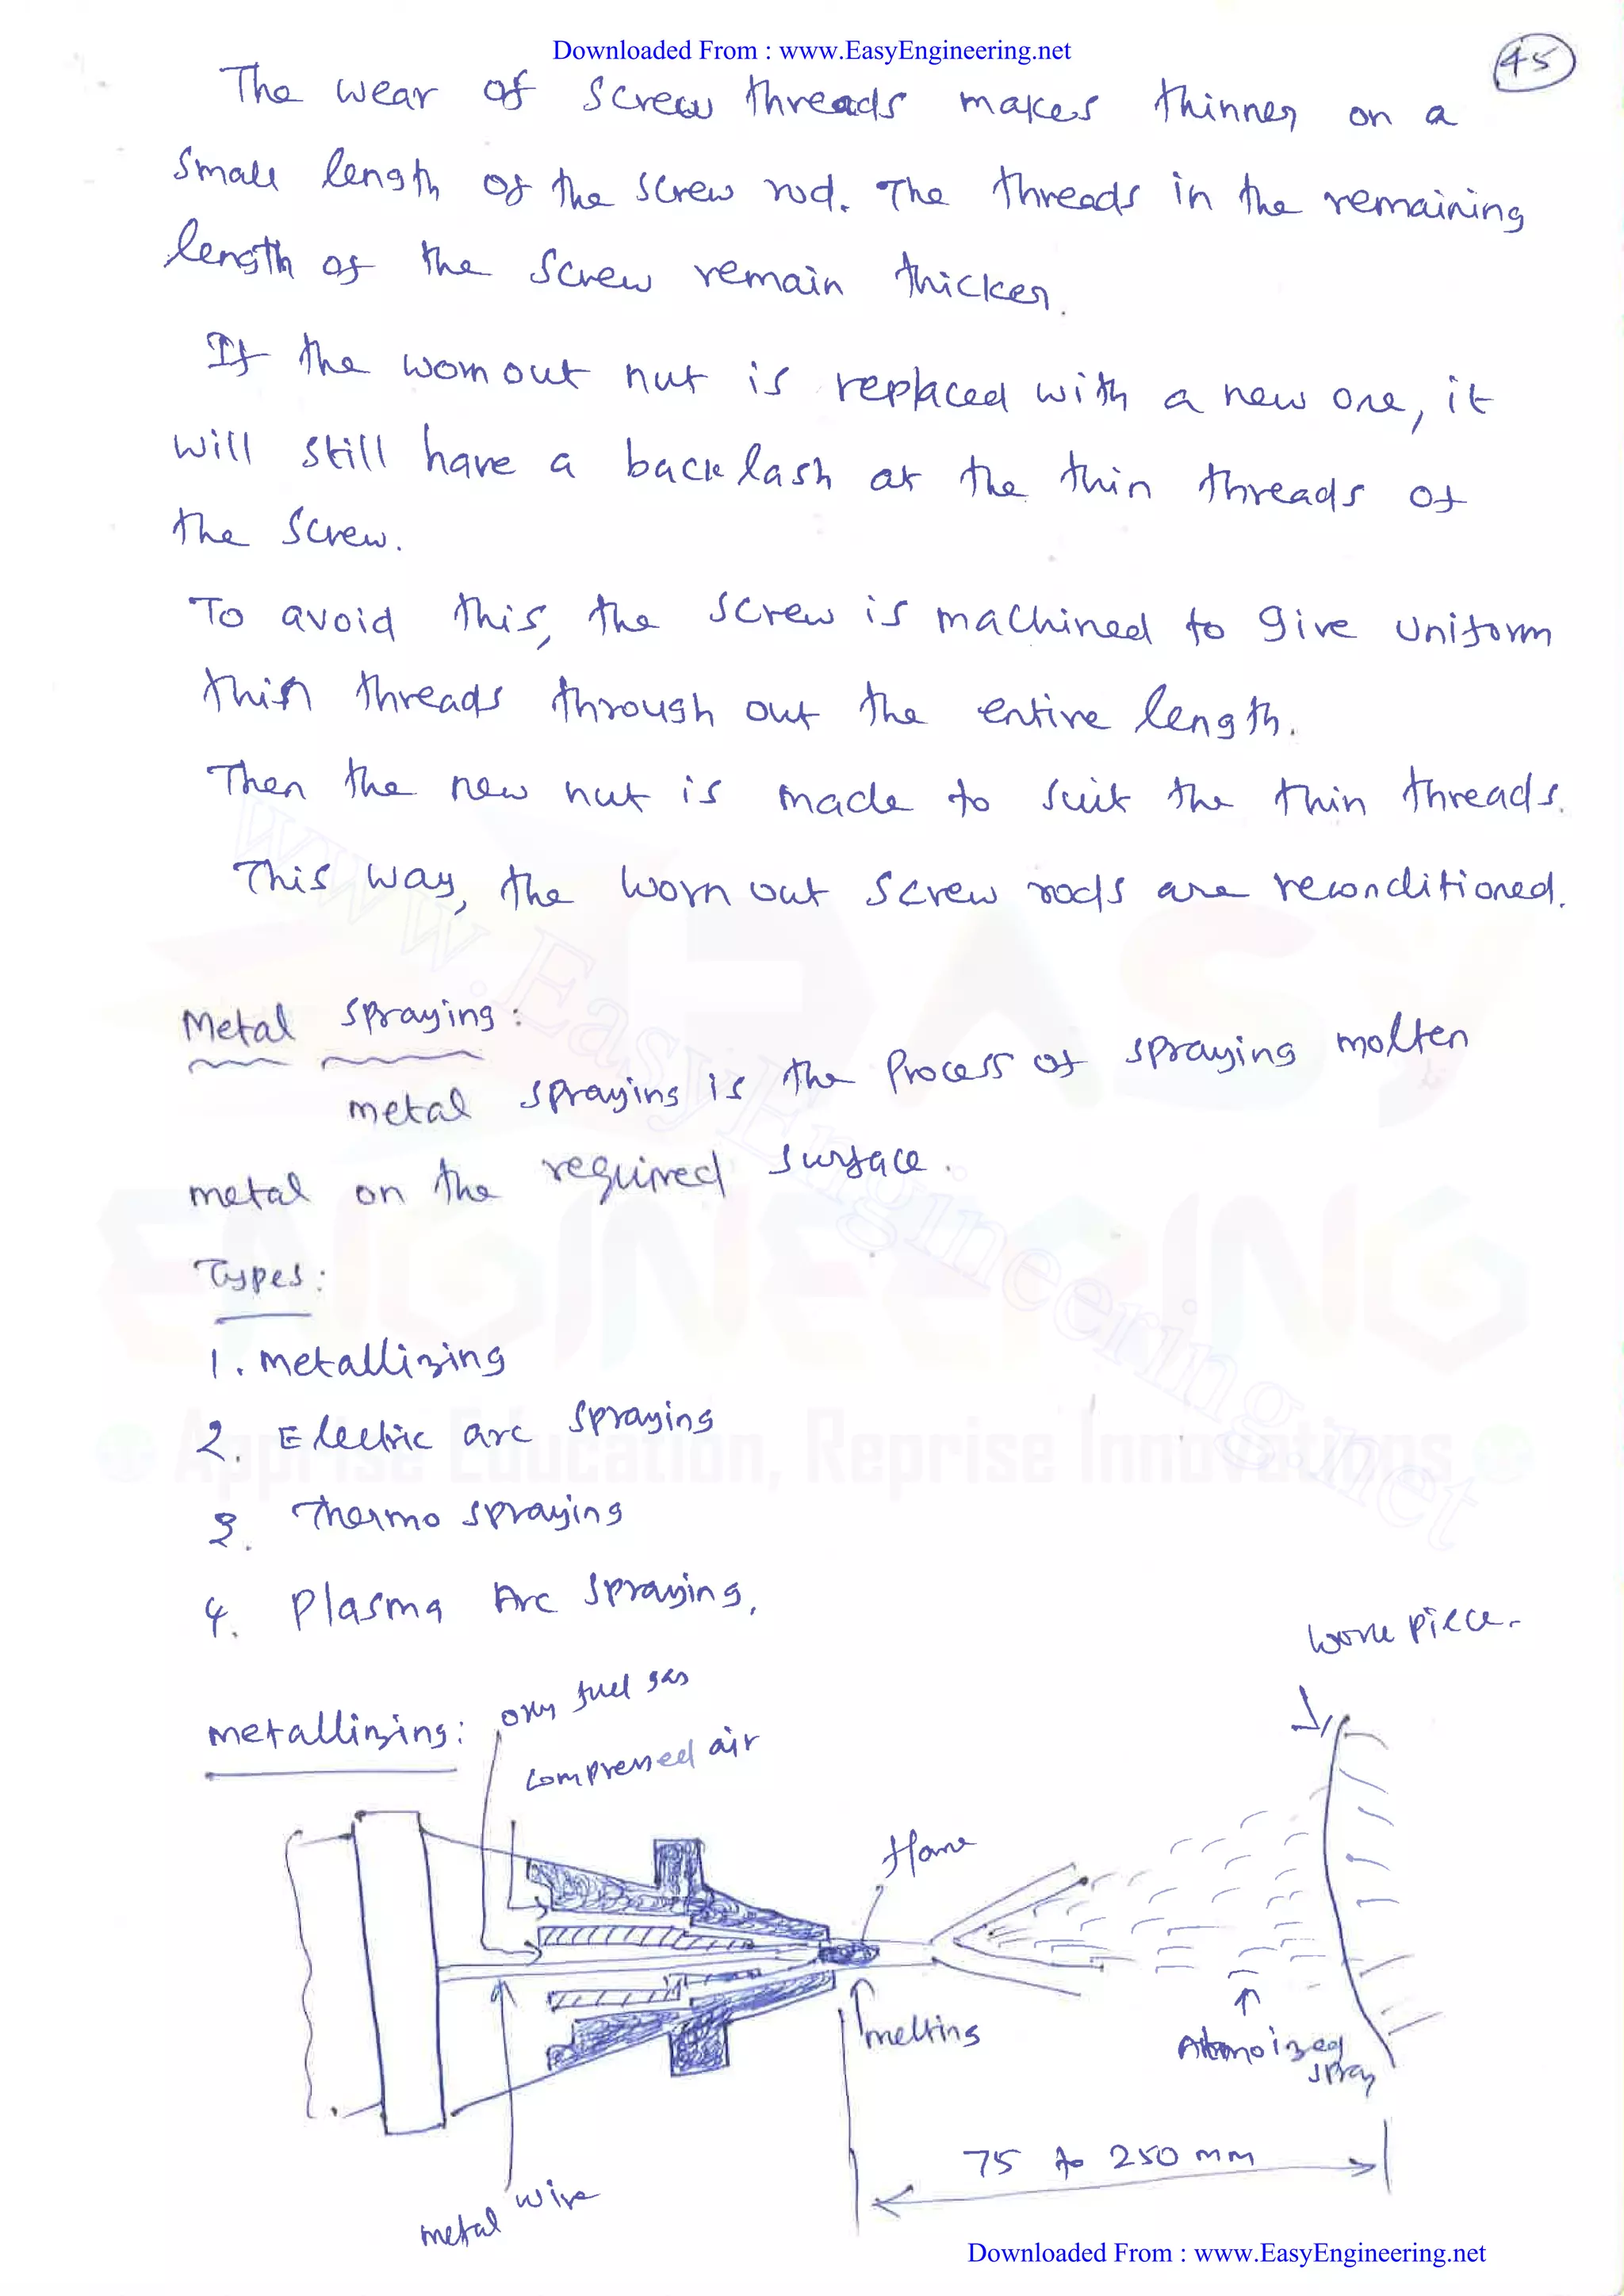 Downloaded From : www.EasyEngineering.net
45
The wear of screw threads makes thinner on a
small length of the screw rod. The threads in the remaining
length of the screw remain thicker.
If the wornout nut is replaced with a new one, it
will still have a backlash at the thin threads of
the screw.
To avoid this, the screw is machined to give uniform
thin threads through out the entire length.
Then the new nut is made to suit the thin threads.
This way, the worn out screw rods are reconditioned.
Metal spraying :
metal spraying is the process of spraying molten
metal on the required surface.
Types :
1. metallizing
2. Electric arc spraying
3. Thermo spraying
4. Plasma Arc spraying.
work piece.
metallizing :
oxy fuel gas
compressed air
flame
melting
Atomoized
spray
75 to 250 mm
metal wire
www.EasyEngineering.net
EASY
ENGINEERING
Apprise Education, Reprise Innovations
Downloaded From : www.EasyEngineering.net